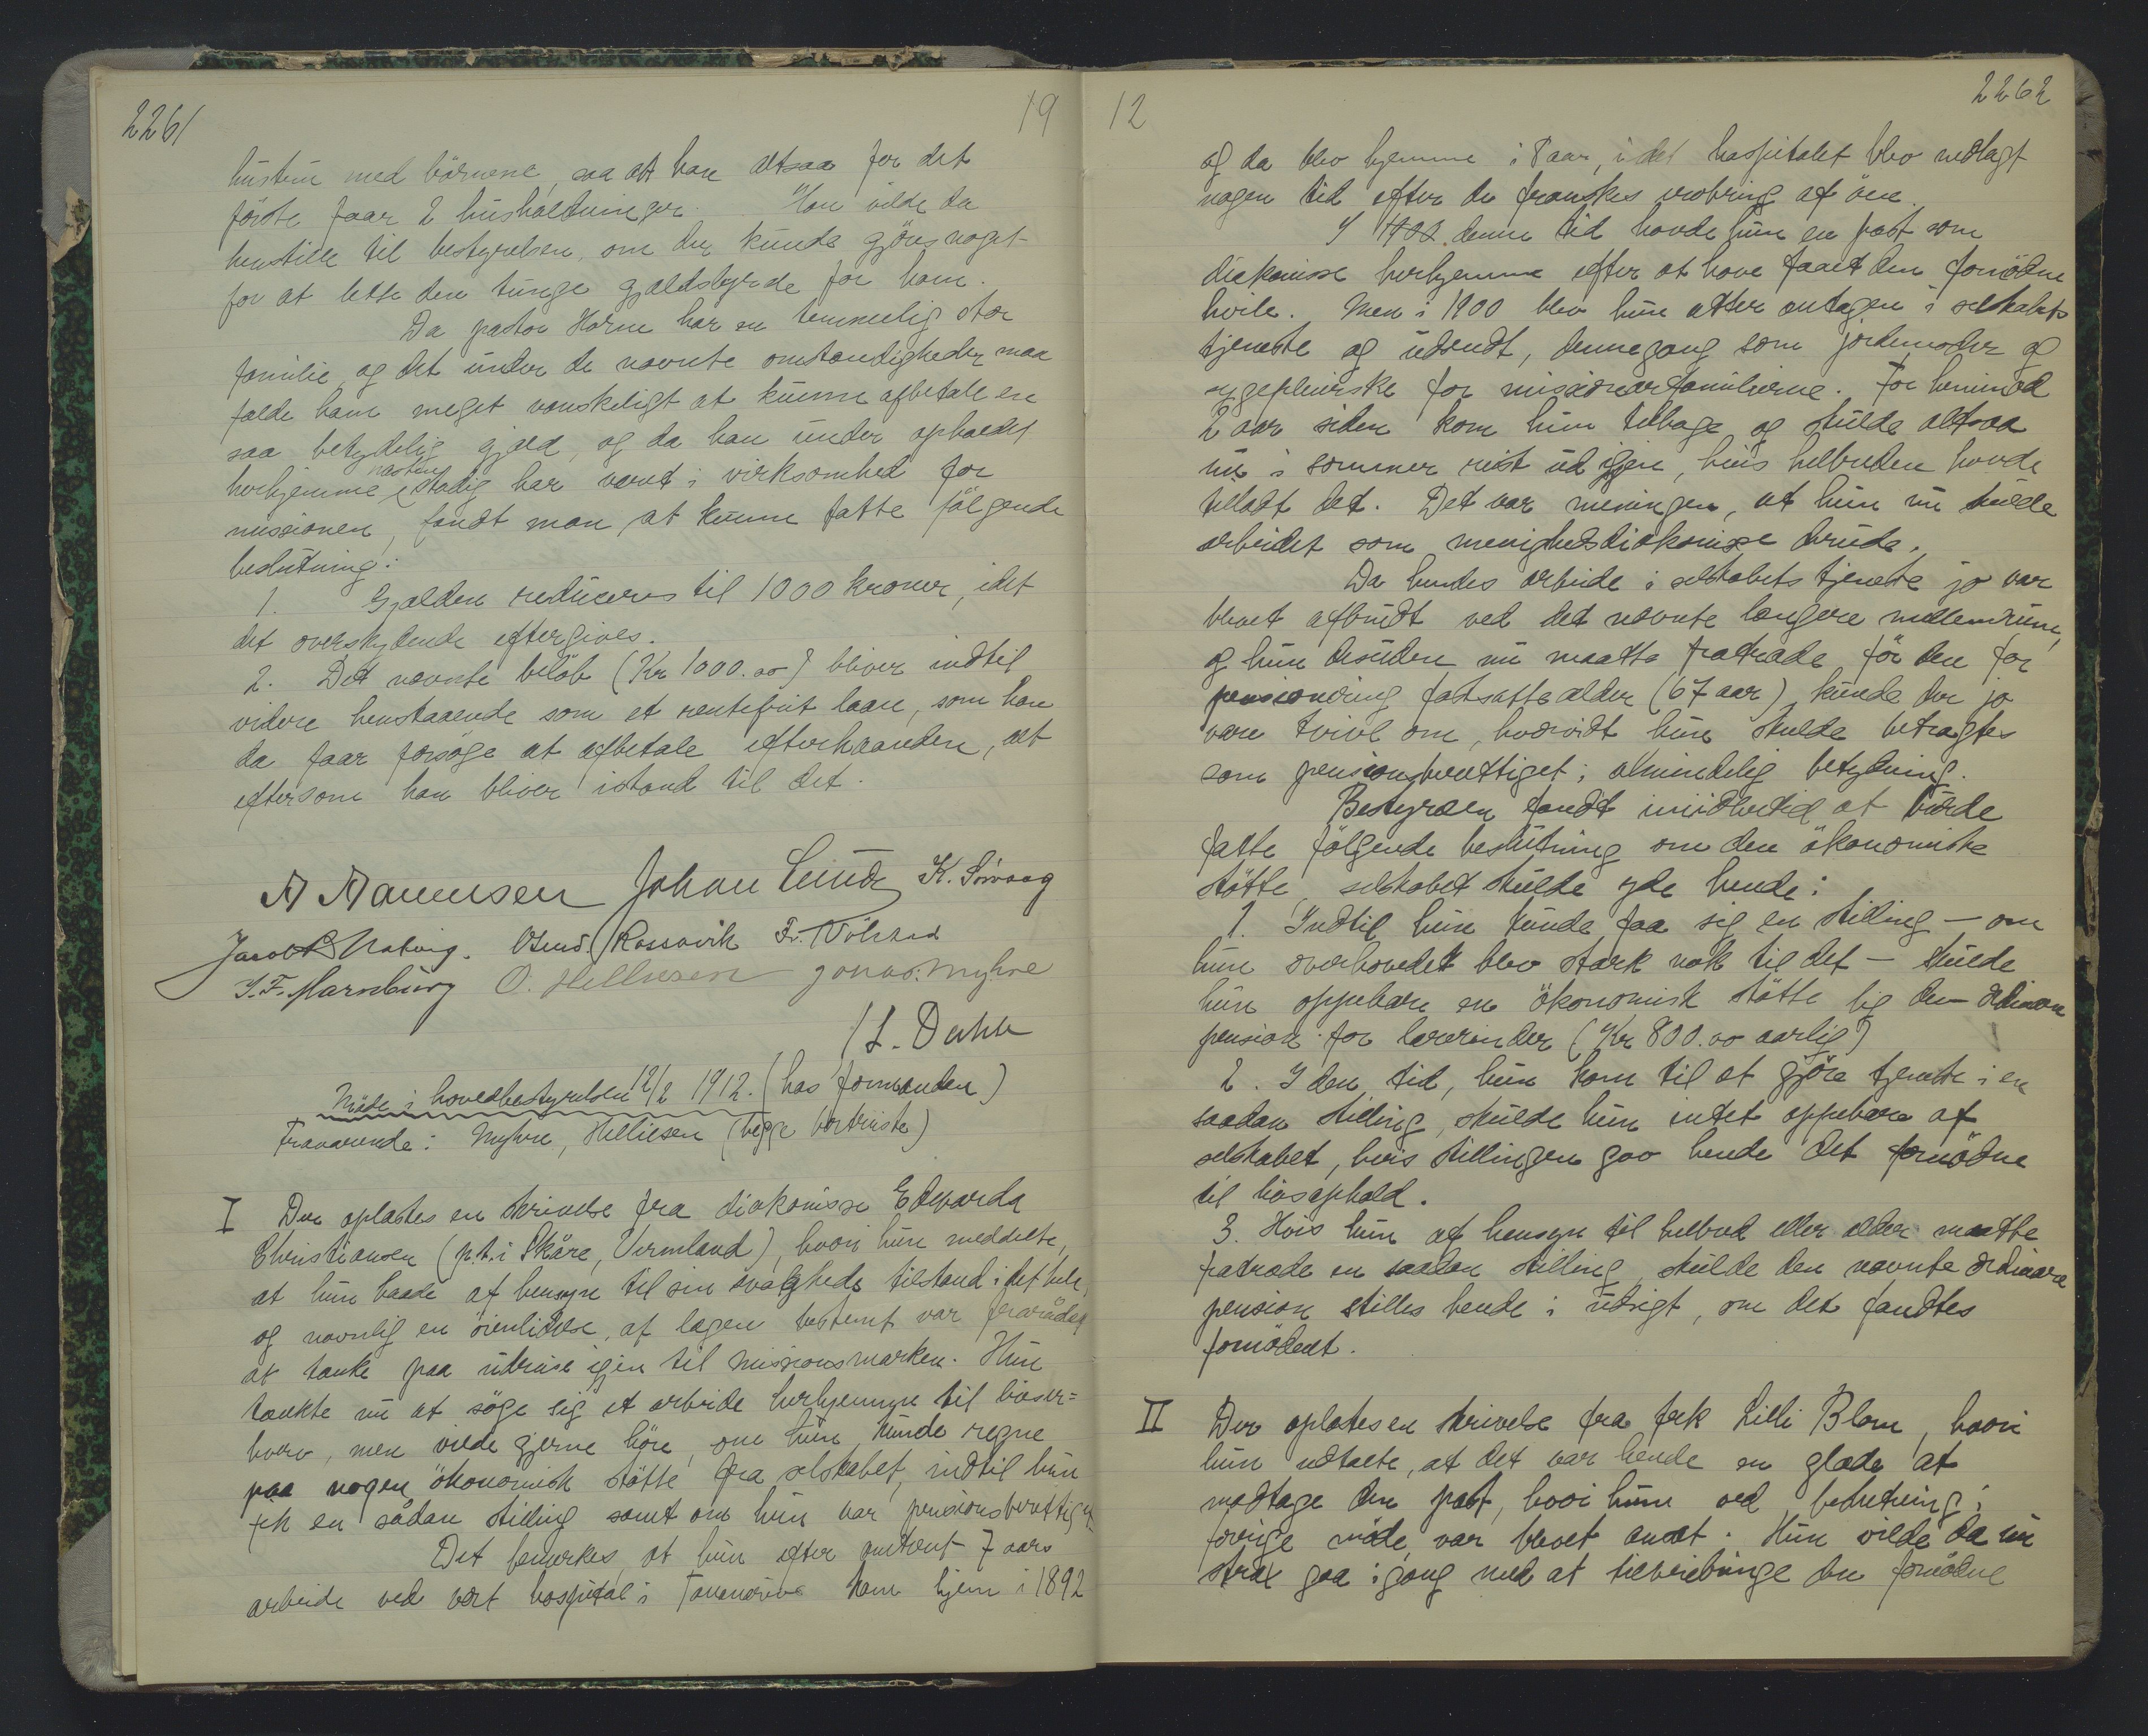 2261
19
hustru med börnene, saa att han altsaa for det
förste faar 2 husholdninger. Han vilde da
henstille til bestyrelsen, om der kunde gjöres noget
for at lette den tunge gjældsbyrde for ham.
Da pastor Horne har en temmelig stor
familie, og det under de nævnte omstændigheder maa
falde ham meget vanskeligt at kunne afbetale en
saa betydelig gjæld, og da han under opholdet
herhjemme næsten stadig har været i virksomhed for
missionen, fandt man at kunne fatte fölgende
beslutning:
1. Gjælden reduceres til 1000 kroner, idet
det overskydende eftergives.
2. Det nævnte belöb (Kr 1000.00) bliver indtil
videre henstaaende som et rentefrit laan, som han
da faar forsöge at afbetale efterhaanden, alt
eftersom han bliver istand til det.
Johan Lunde K. Sörvaag
Jacob Natvig. Osmd. Rossavik Fr.
O. Helliesen Jonas. Myhre
L. Dahle
Möde i hovedbestyrelsen 12/2 1912. (hos formanden)
Fraværende: Myhre, Helliesen (begge bortreiste)
I Der oplæstes en skrivelse fra diakonisse Edvarda
Christiansen (p.t. i Skåre, Vermland), hvori hun meddelte,
at hun baade af hensyn til sin svaghedstilstand i det hele,
og navnlig en öienlidelse, af lægen bestemt var fraraadet
at tænke paa udreise igjen til missionsmarken. Hun
tænkte nu at söge sig et arbeide herhjemme til livser=
hverv, men vilde gjerne höre, om hun kunde regne
paa nogen ökonomisk stötte fra selskabet, indtil hun
fik en sådan stilling samt om hun var pensionsberettiget.
Det bemerkes, at hun efter omtrent 7 aars
arbeide ved vort hospital i Tananarivo kom hjem i 1892
12
2262
og da blev hjemme i 8 aar, idet hospitalet blev nedlagt
nogen tid efter de franskes erobring af öen.
I denne tid havde hun en post som
diakonisse herhjemme efter at have faaet den fornödne
hvile. Men i 1900 blev hun atter antagen i selskabets
tjeneste og udsendt, dennegang som jordemoder og
sygepleierske for missionærfamilierne. For henimod
2 aar siden kom hun tilbage og skulde altsaa
nu i sommer reist ud igjen, hvis helbreden havde
tilladt det. Det var meningen, at hun nu skulde
arbeidet som menighedsdiakonisse derude.
Da hendes arbeide i selskabets tjeneste jo var
blevet afbrudt ved det nævnte længere mellemrum,
og hun desuden nu maatte fratræde för den for
pensionering fastsatte alder (67 aar), kunde der jo
være tvivl om, hvorvidt hun skulde betragtes
som pensionsberettiget i almindelig betydning.
Bestyrelsen fandt imidlertid at burde
fatte fölgende beslutning om den ökonomiske
stötte, selskabet skulde yde hende:
1. Indtil hun kunde faa sig en stilling – om
hun overhovedet blev stærk nok til det – skulde
hun oppebære en ökonomisk stötte lig den ordinære
pension for lærerinder (Kr 800.00 aarlig)
2. I den tid, hun kom til at gjöre tjeneste i en
saadan stilling, skulde hun intet oppebære af
selskabet, hvis stillingen gav hende det fornödne
til livsophold.
3. Hvis hun af hensyn til helbred eller alder maatte
fratræde en saadan stilling, skulde den nævnte ordinære
pension stilles hende i udsigt, om det fandtes
fornödent.
II Der oplæstes en skrivelse fra frk Lilli Blom, hvori
hun udtalte, at det var hende en glæde at
modtage den post, hvori hun ved beslutning i
forrige möde var blevet ansat. Hun vilde da nu
strax gaa igang med at tilveiebringe den fornödne